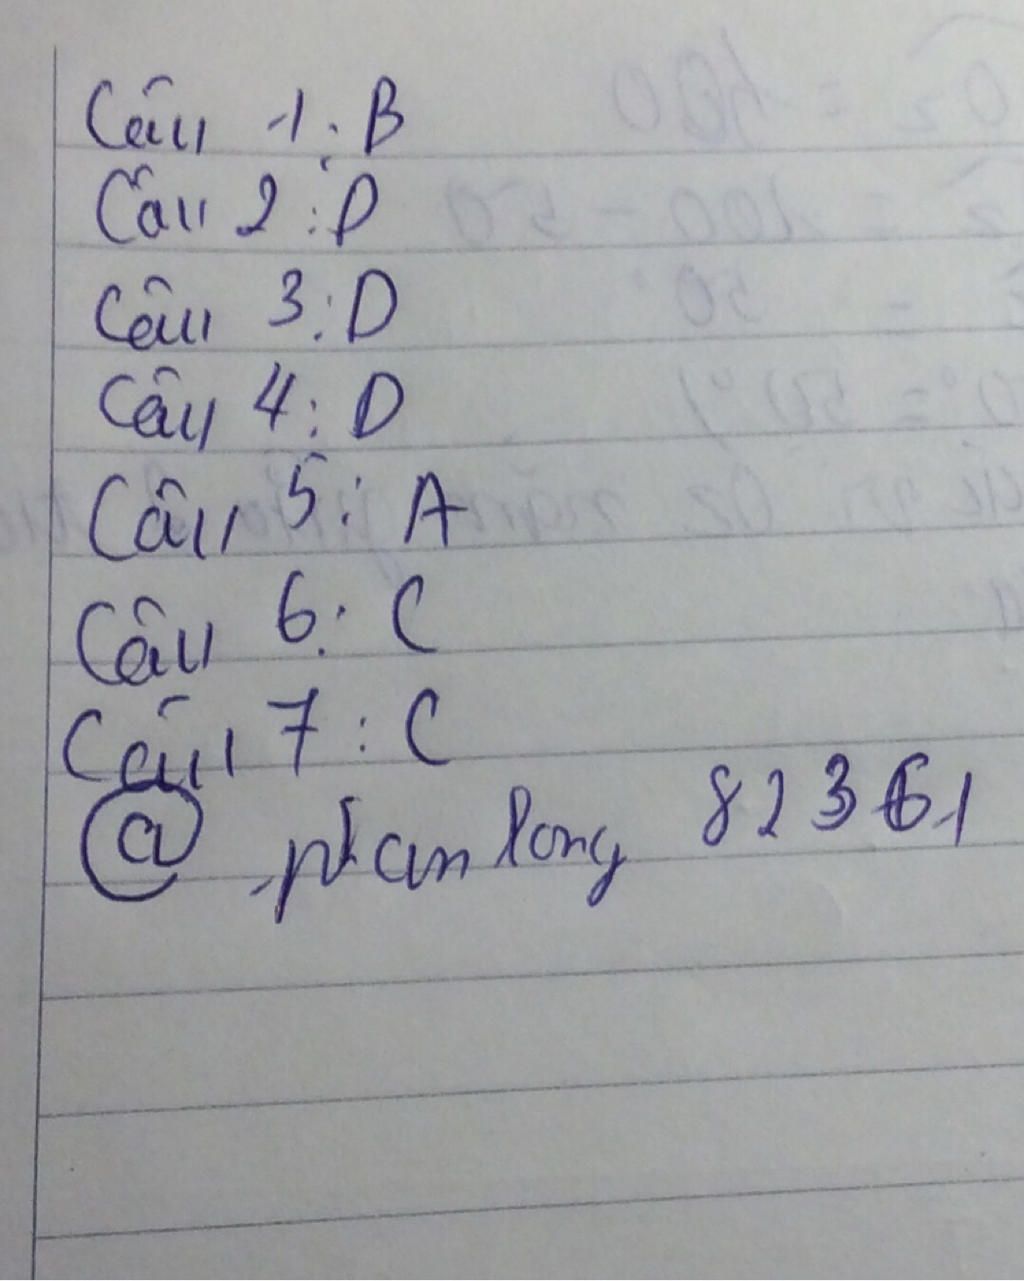 Câu 1: B
Câu 2: D
Câu 3: D
Câu 4: D
Câu 5: A
Câu 6: C
Câu 7: C
@ phanlong 82361